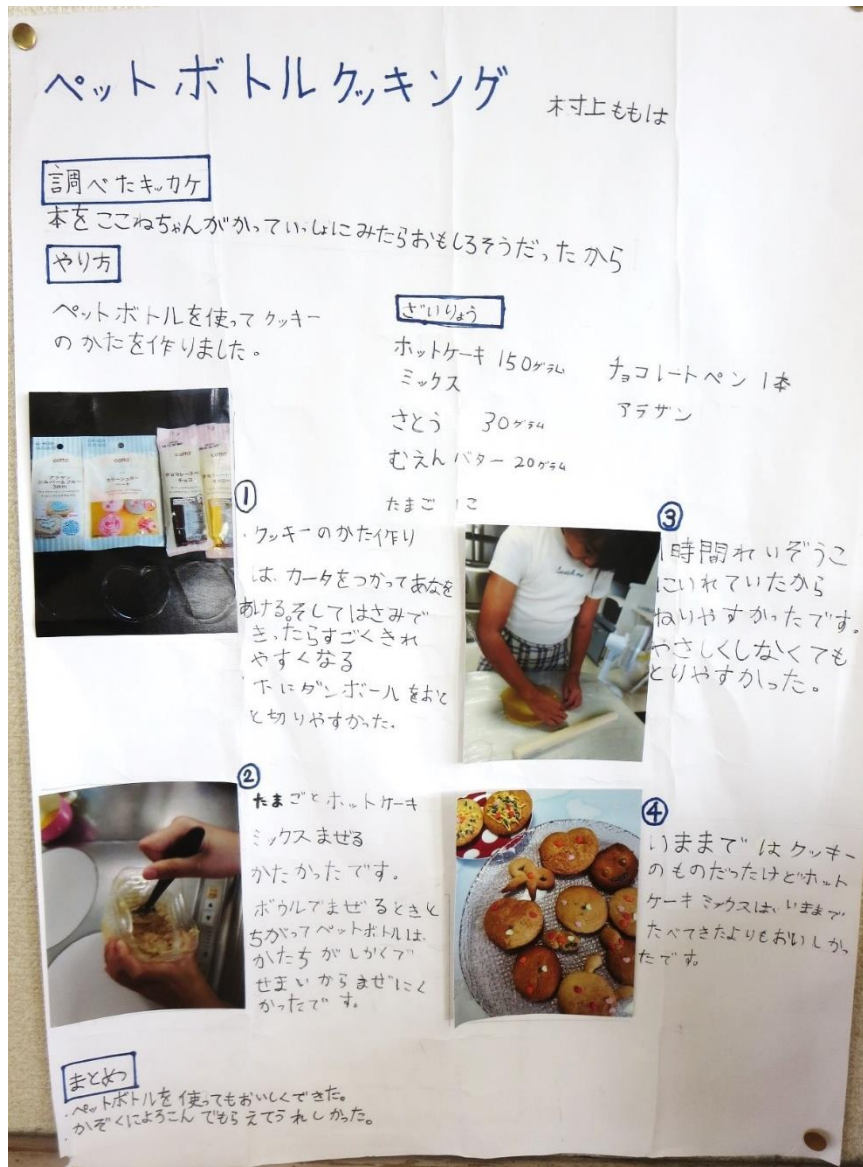 ペットボトルクッキング
村上ももは
調べたキッカケ
本をここねちゃんがかっていっしょにみたらおもしろそうだったから
やり方
ペットボトルを使ってクッキー
のかたを作りました。
ざいりょう
ホットケーキ 150グラム
ミックス
さとう 30グラム
むえんバター 20グラム
たまご 1こ
チョコレートペン 1本
アラザン
cotta
cotta
①
・クッキーのかた作り
は、カータをつかってあなを
あける。そしてはさみで
きったらすごくきれ
やすくなる
たにダンボールをおく
と切りやすかった。
②
たまごとホットケーキ
ミックスまぜる
かたかったです。
ボウルでまぜるときと
ちがってペットボトルは、
かたちがしかくで
せまいからまぜにく
かったです。
③
1時間れいぞうこ
にいれていたから
ねりやすかったです。
やさしくしなくても
とりやすかった。
④
いままではクッキー
のものだったけどホット
ケーキミックスは、いままで
たべてきたよりもおいしかっ
たです。
まとめ
・ペットボトルを使ってもおいしくできた。
・かぞくによろこんでもらえてうれしかった。